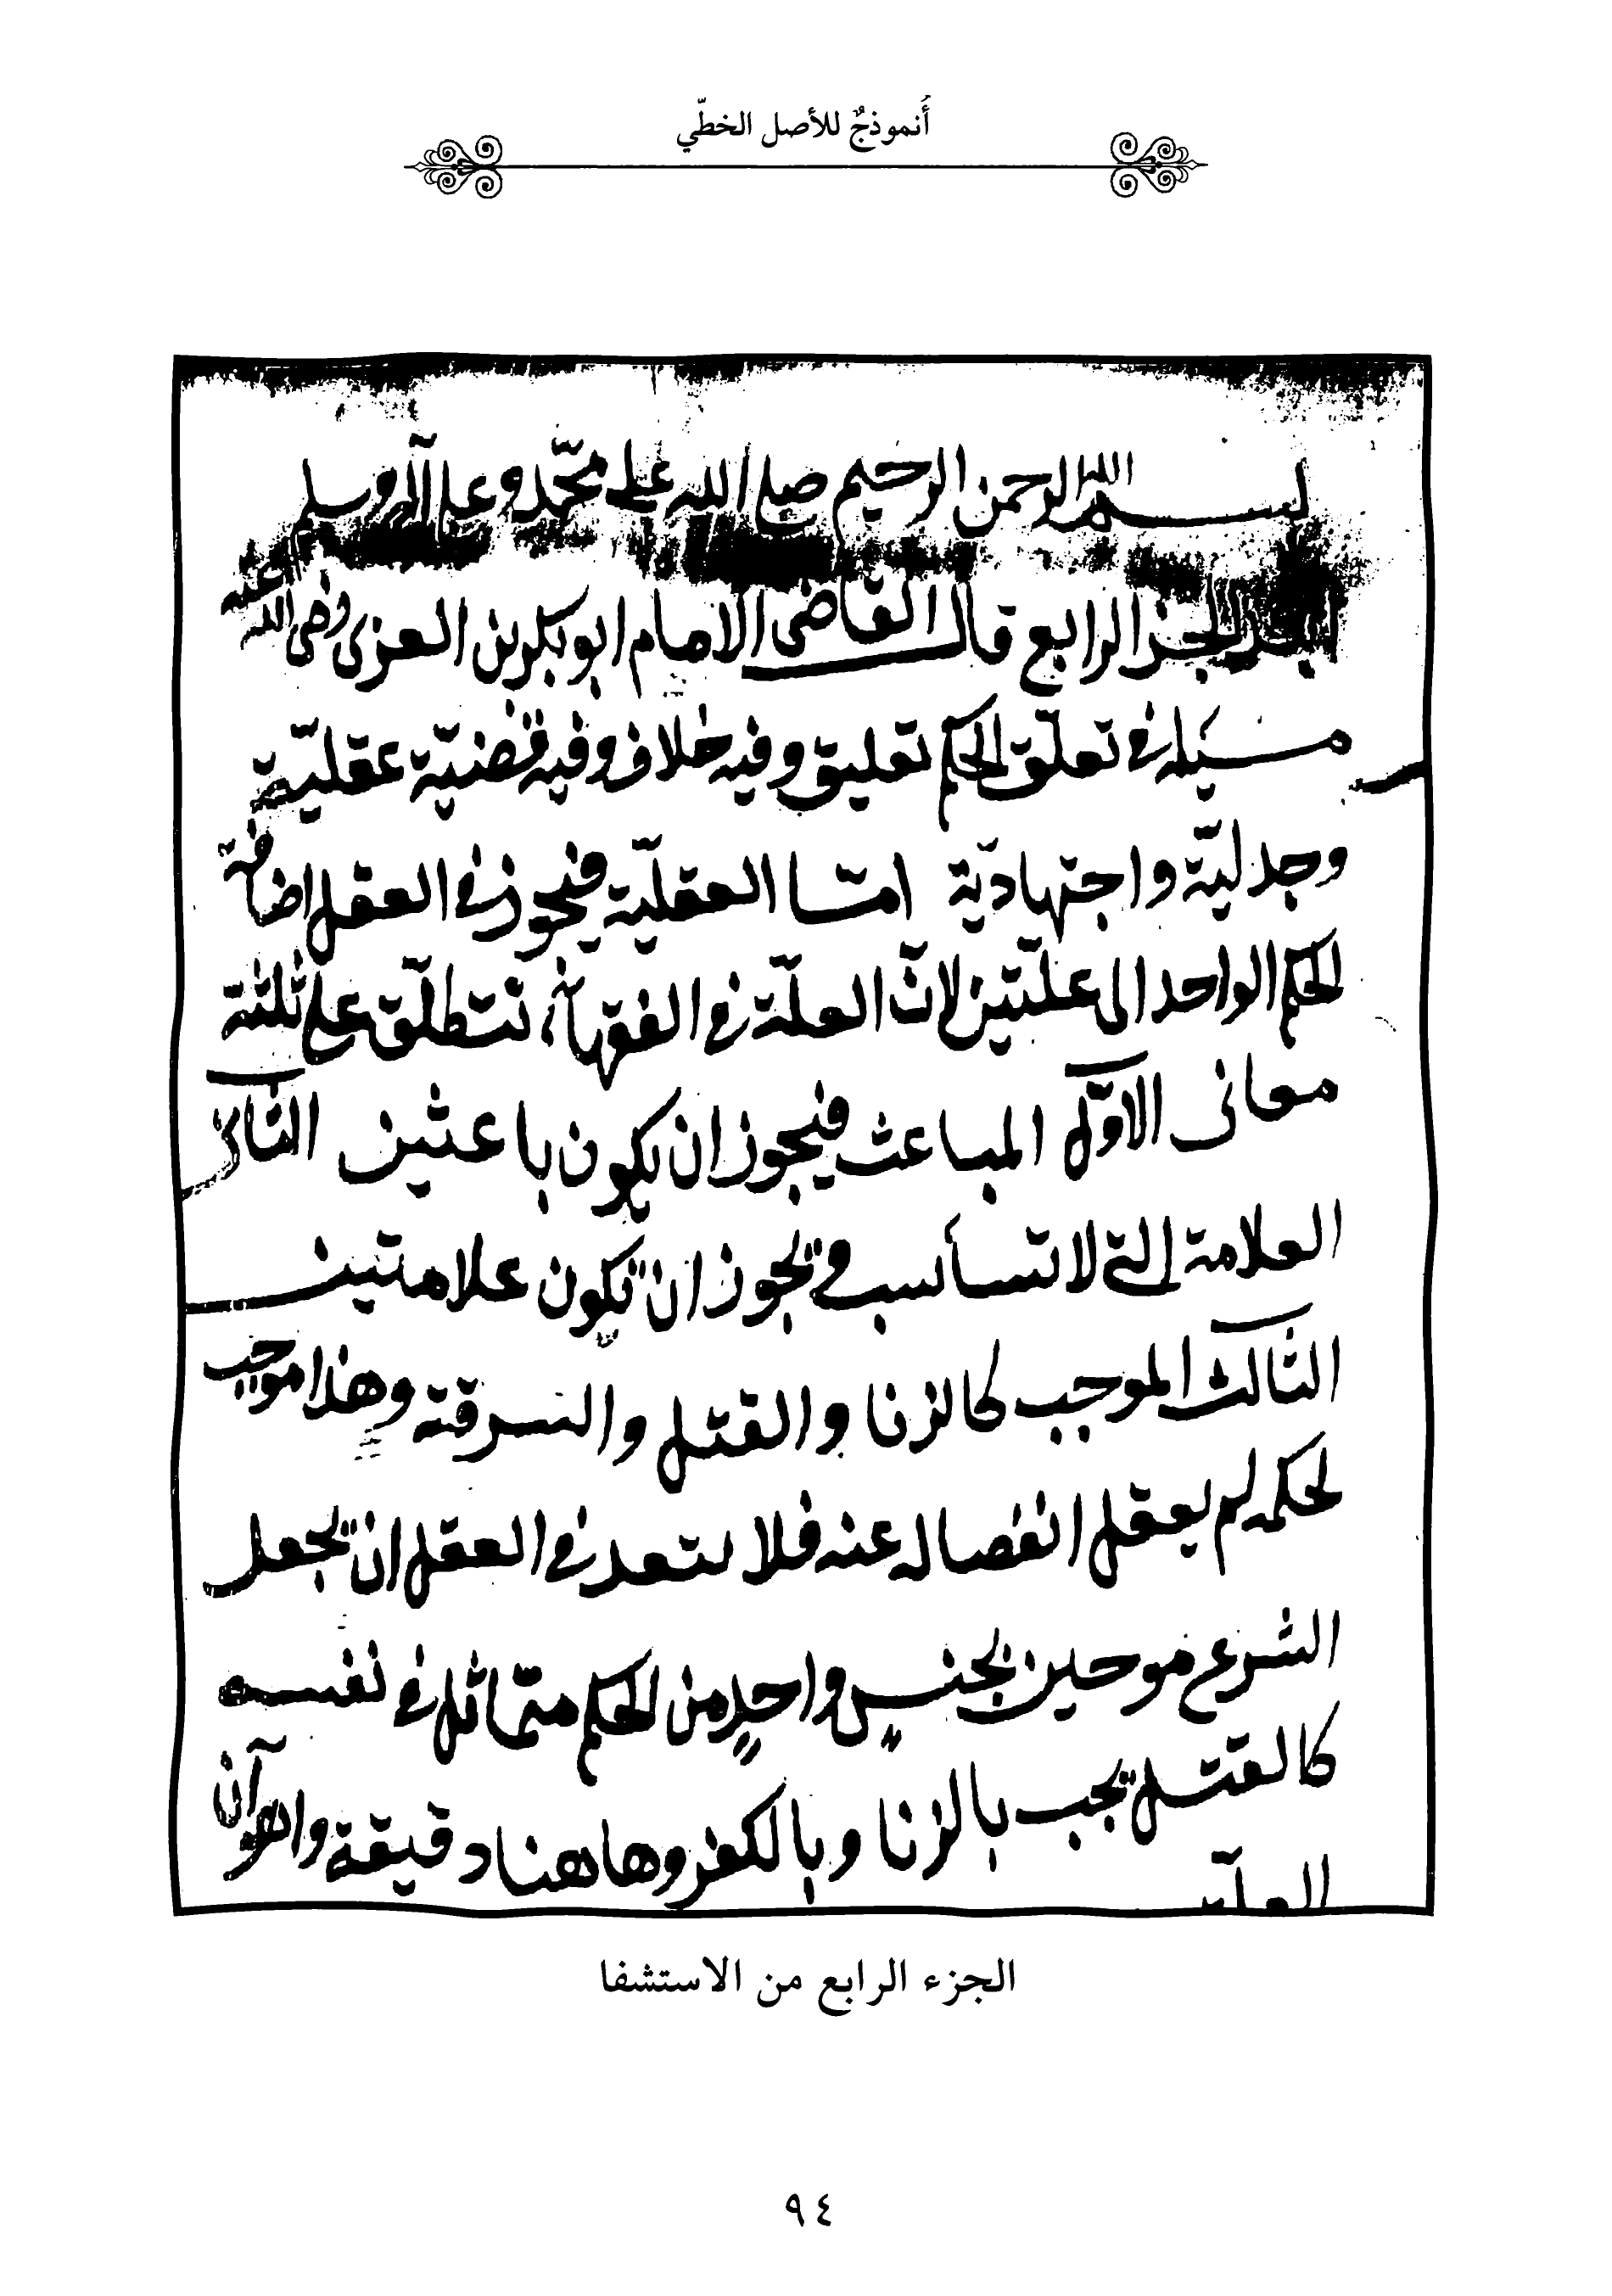 أُنموذجٌ للأصل الخطّي
بسم الله الرحمن الرحيم صلى الله على محمّد وعلى آله وسلم
الجزء الرابع قال القاضى الامام ابو بكر بن العربى رضى الله عنه
مسئلة فى تعلّق الحكم تعليق وفيه خلاف وفيه قضيّة عقليّة
وجدليّة واجتهاديّة امّا العقليّة فيجوز فى العقل اضافة
الحكم الواحد الى علّتين لانّ العلّة فى الفقهاء تنطلّق على ثلثة
معانى الاوّل المباعث فيجوز ان يكون باعثين الثانى
العلامة التى لا تساسب ويجوز ان تكون علامتين
الثالث الموجب كالزنا والقتل والسرقة وهذا موجب
لحكمه لم يعقل انفصاله عنه فلا يتعد فى العقل ان يجعل
الشرع موحين بجنسٍ واحدٍ من الحكم متماثل فى نفسه
كالقتل يجب بالزنا وبالكفر وهاهنا دقيقة وهو آن
الجزء الرابع من الاستشفا
٩٤